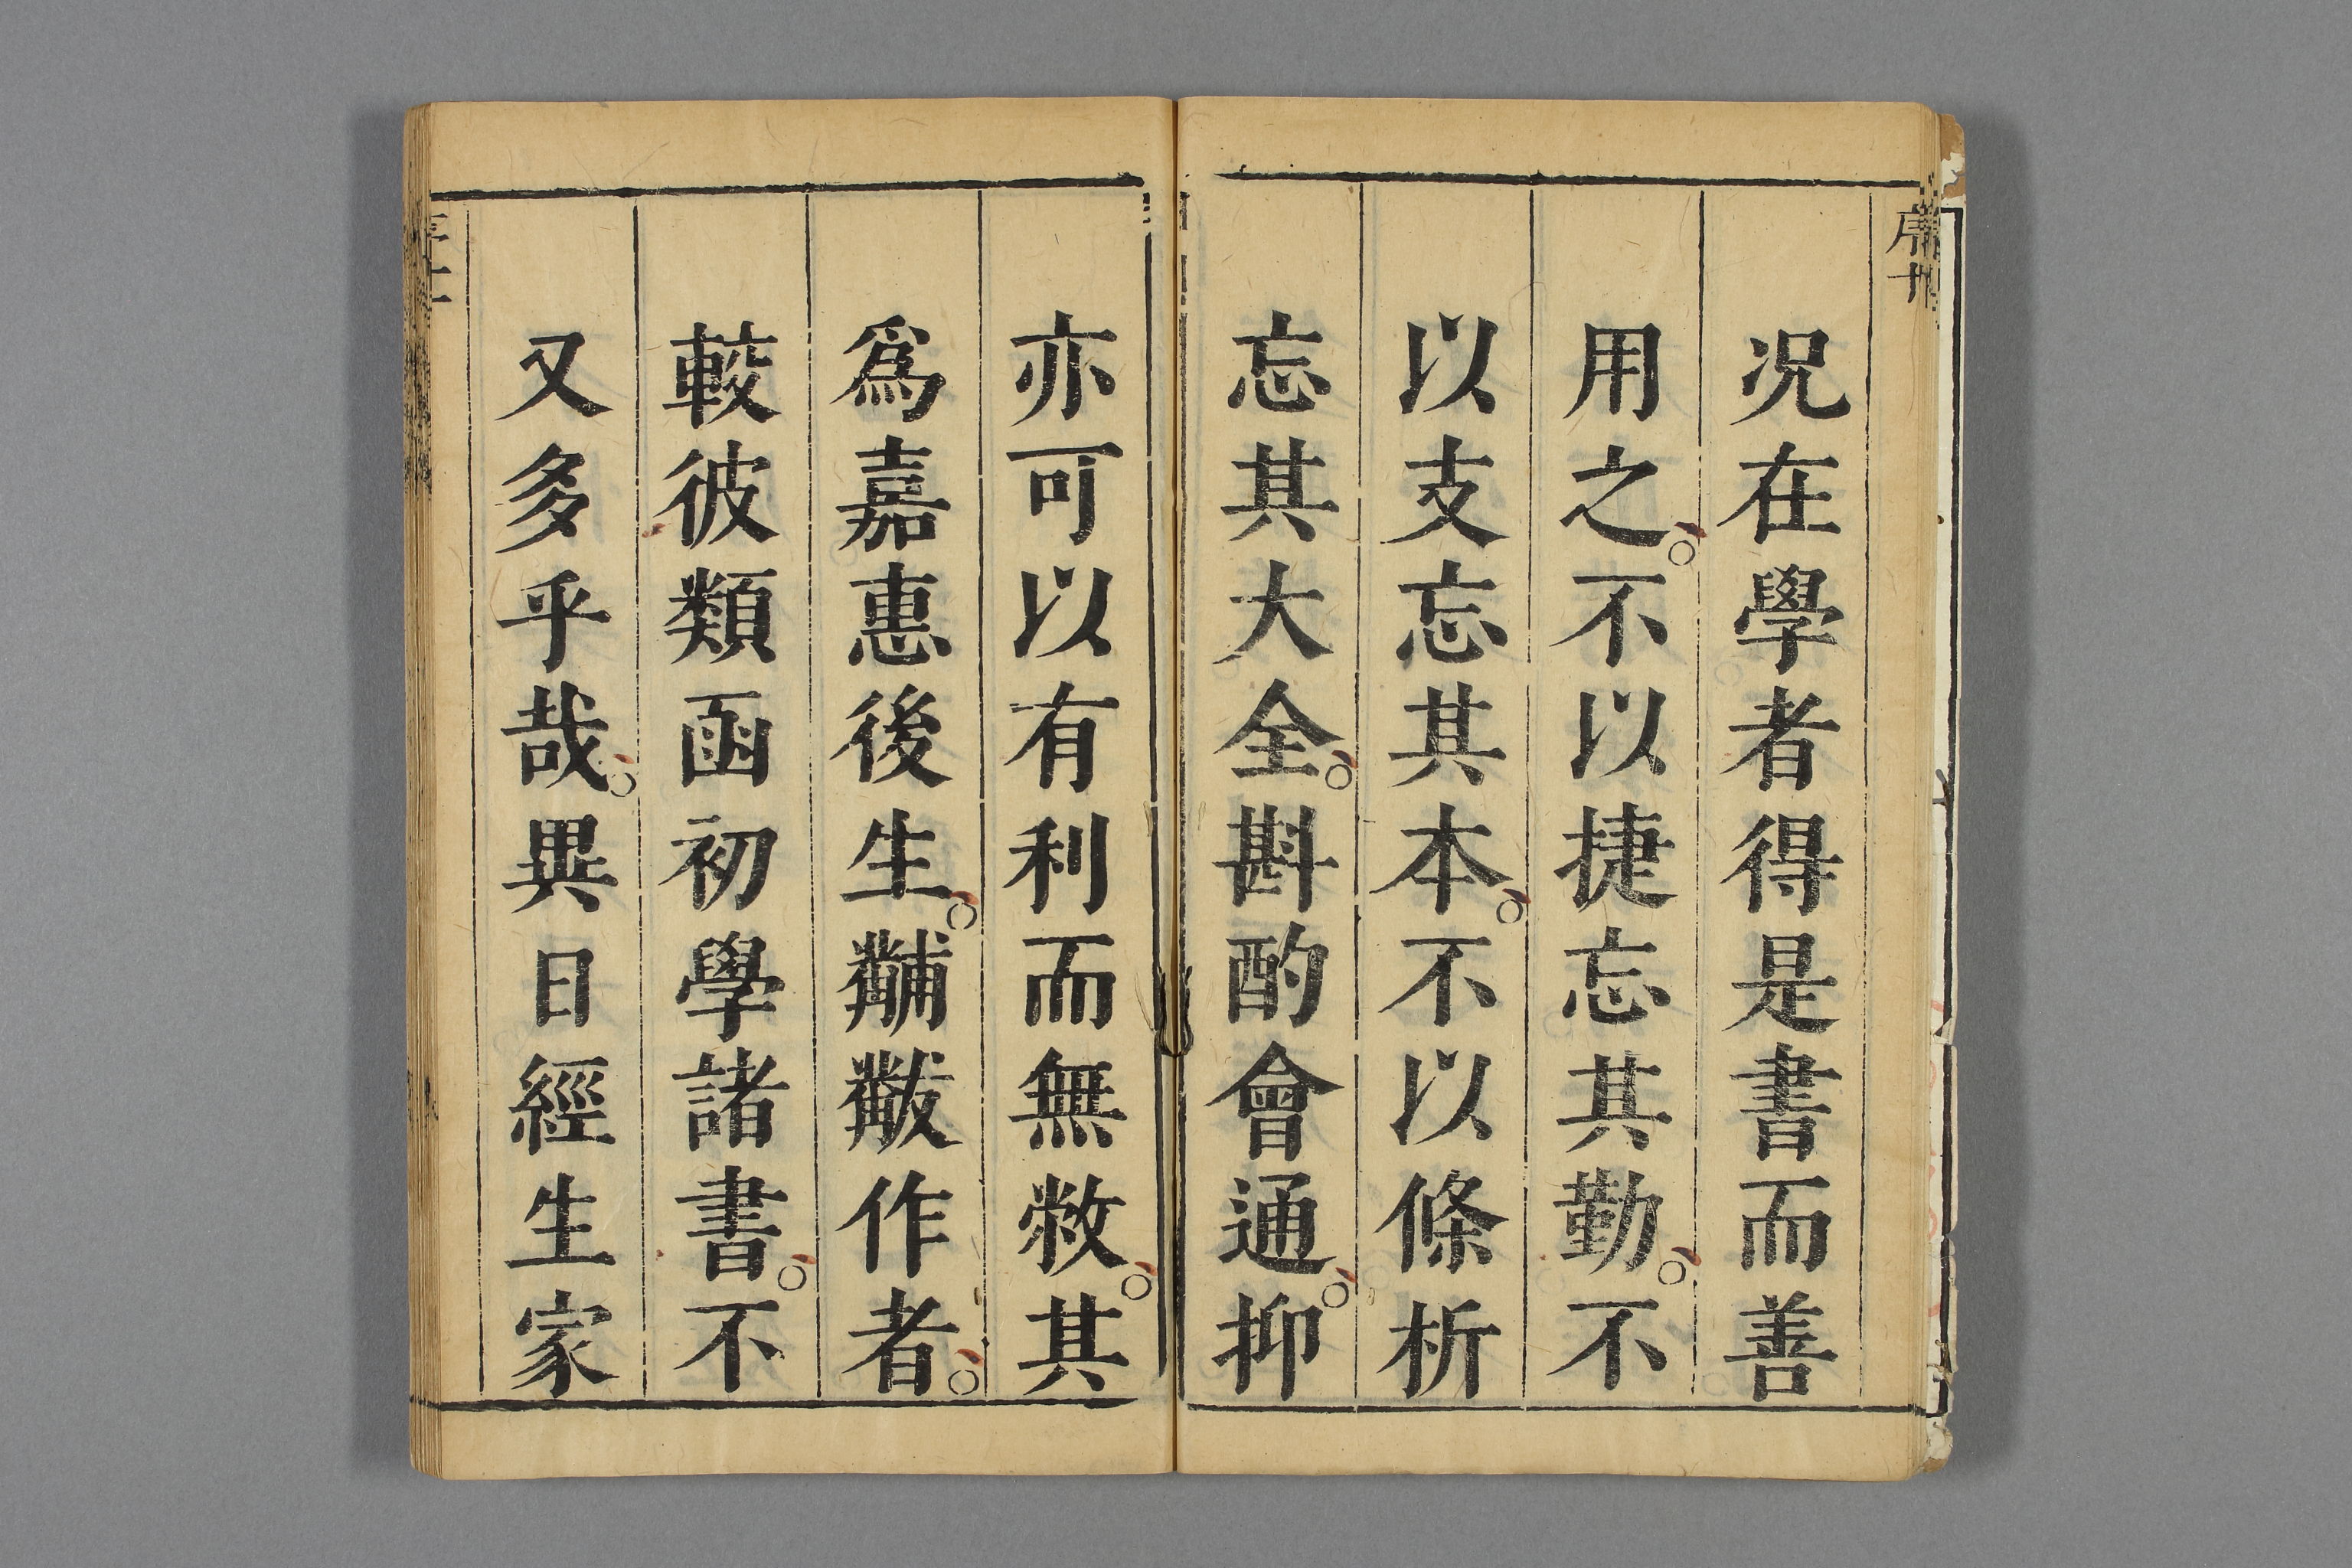 况在學者得是書而善
用之。不以捷忘其勤。不
以支忘其本。不以條析
忘其大全。斟酌會通。抑
亦可以有利而無救。其
爲嘉惠後生。黼黻作者。
較彼類函初學諸書。不
又多乎哉。異日經生家